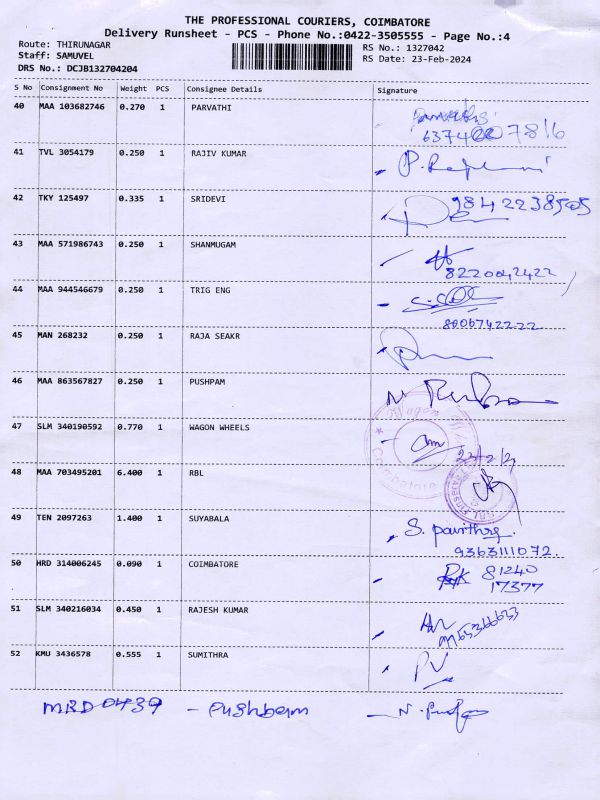 THE PROFESSIONAL COURIERS, COIMBATORE
Delivery Runsheet - PCS - Phone No.:0422-3505555 - Page No.:4
Route: THIRUNAGAR
RS No.: 1327042
Staff: SAMUVEL
RS Date: 23-Feb-2024
DRS No.: DCJB132704204
S No Consignment No Weight PCS Consignee Details Signature
40 MAA 103682746 0.270 1 PARVATHI
41 TVL 3054179 0.250 1 RAJIV KUMAR
42 TKY 125497 0.335 1 SRIDEVI 9842238505
43 MAA 571986743 0.250 1 SHANMUGAM
8220042422
44 MAA 944546679 0.250 1 TRIG ENG
45 MAN 268232 0.250 1 RAJA SEAKR
46 MAA 863567827 0.250 1 PUSHPAM
47 SLM 340190592 0.770 1 WAGON WHEELS
Wagon
Coimbatore
48 MAA 703495201 6.400 1 RBL
49 TEN 2097263 1.400 1 SUYABALA
9363111072
50 HRD 314006245 0.090 1 COIMBATORE 81240
17377
51 SLM 340216034 0.450 1 RAJESH KUMAR
52 KMU 3436578 0.555 1 SUMITHRA PV
MBD 0439 - Pushbam